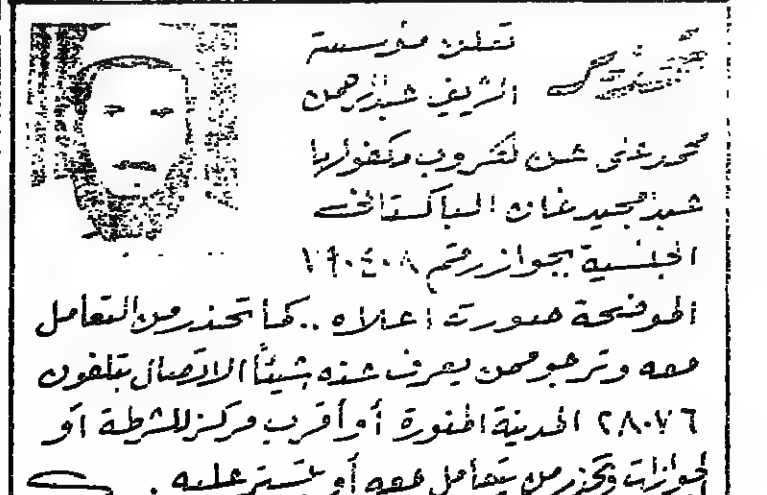 تعلن مؤسسة
الشريف عبدالرحمن
عن هروب مكفولها
عبدالمجيد خان الباكستاني
الجنسية بجواز رقم
الموضحة صورته أعلاه .. كما تحذر من التعامل
معه وترجو ممن يعرف عنه شيئاً الاتصال بتلفون
٢٨٠٧٦ المدينة المنورة أو أقرب مركز للشرطة أو
الجوازات وتحذر من يتعامل معه أو يتستر عليه .